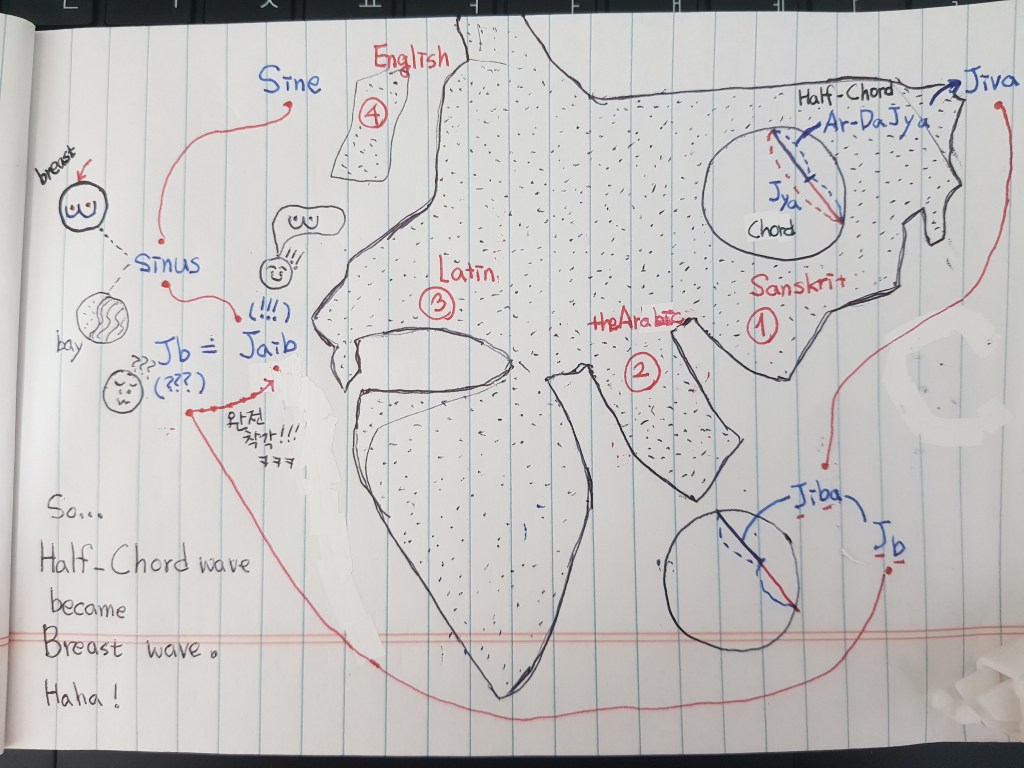 English
Sine
④
Half-Chord
Jiva
Ar-DaJya
Jya
Chord
breast
sinus
Latin
③
Sanskrit
①
theArabic
②
bay
(!!!)
Jb ≓ Jaib
???
(???)
완전
착각!!!
ㅋㅋㅋ
Jiba
Jb
So...
Half-Chord wave
became
Breast wave.
Haha!